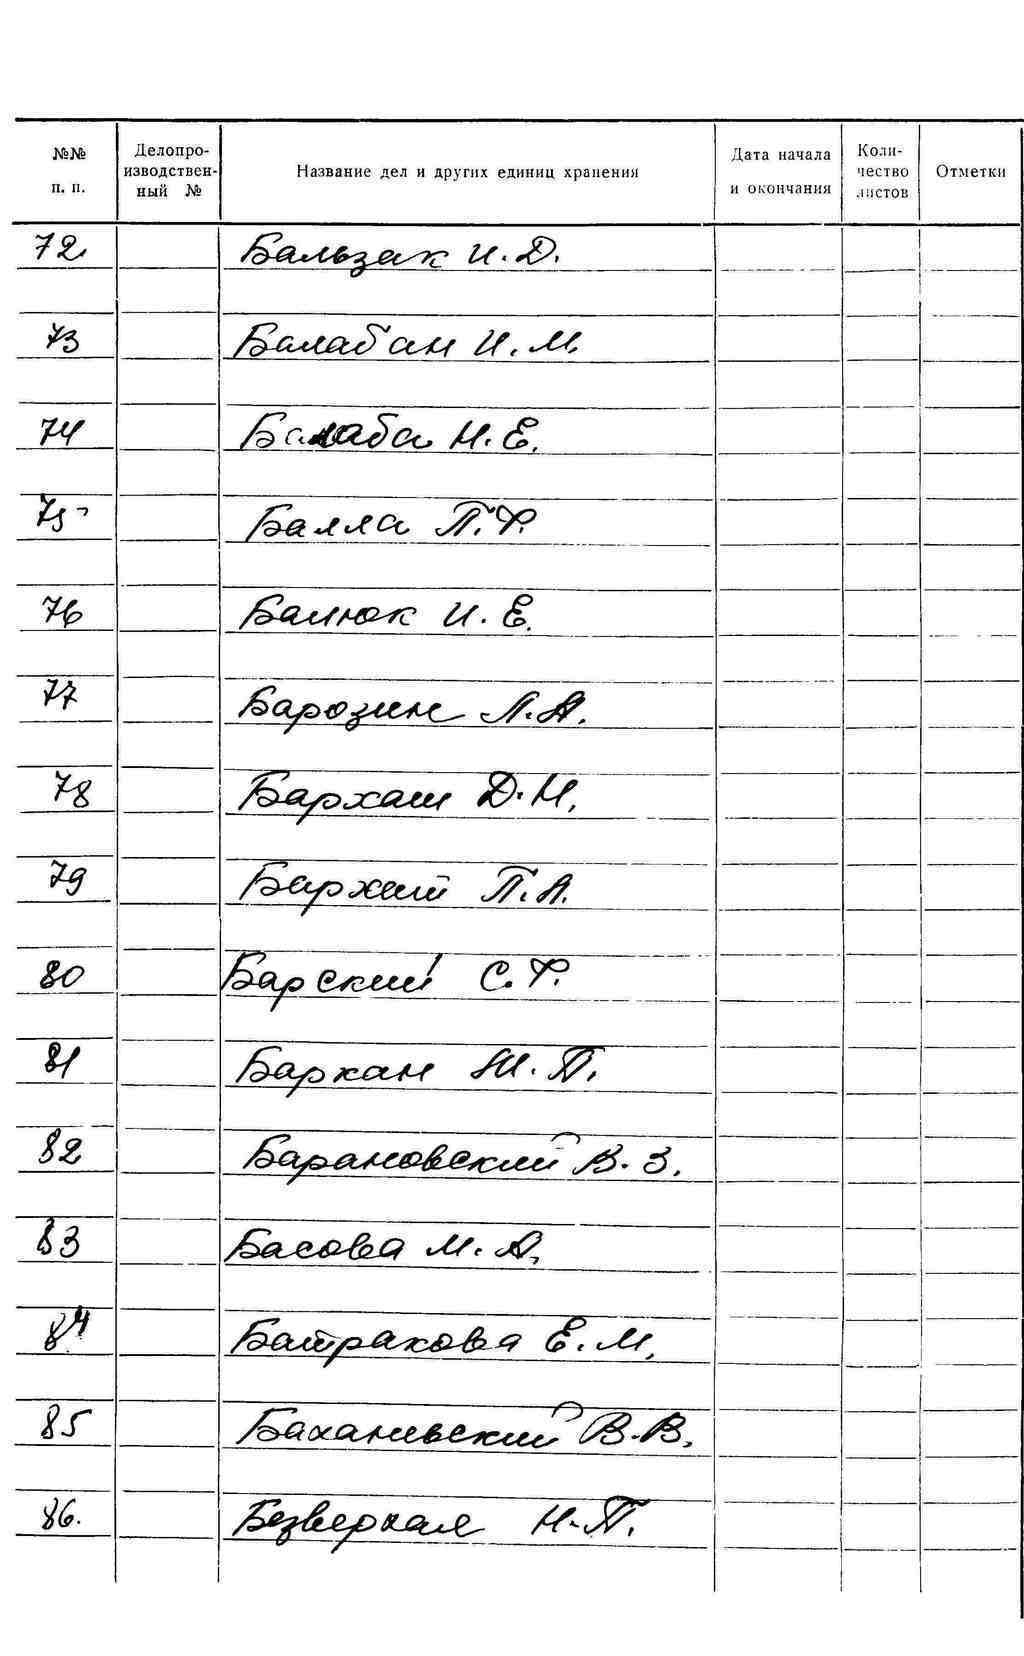 №№ п. п. Делопроизводственный № Название дел и других единиц хранения Дата начала и окончания Количество листов Отметки
72. Бальзак И. Д.
73 Балабан И. М.
74 Балаба Н. Е.
75 Балла П. Ф.
76 Балюк И. Е.
77 Барозин Л. А.
78 Бархаш Д. Н.
79 Бархий П. А.
80 Барский С. Ф.
81 Баркан Ш. П.
82 Барановский В. З.
83 Басова М. А.
84 Батракова Е. М.
85 Баханевский В. В.
86. Безверхая Н. П.